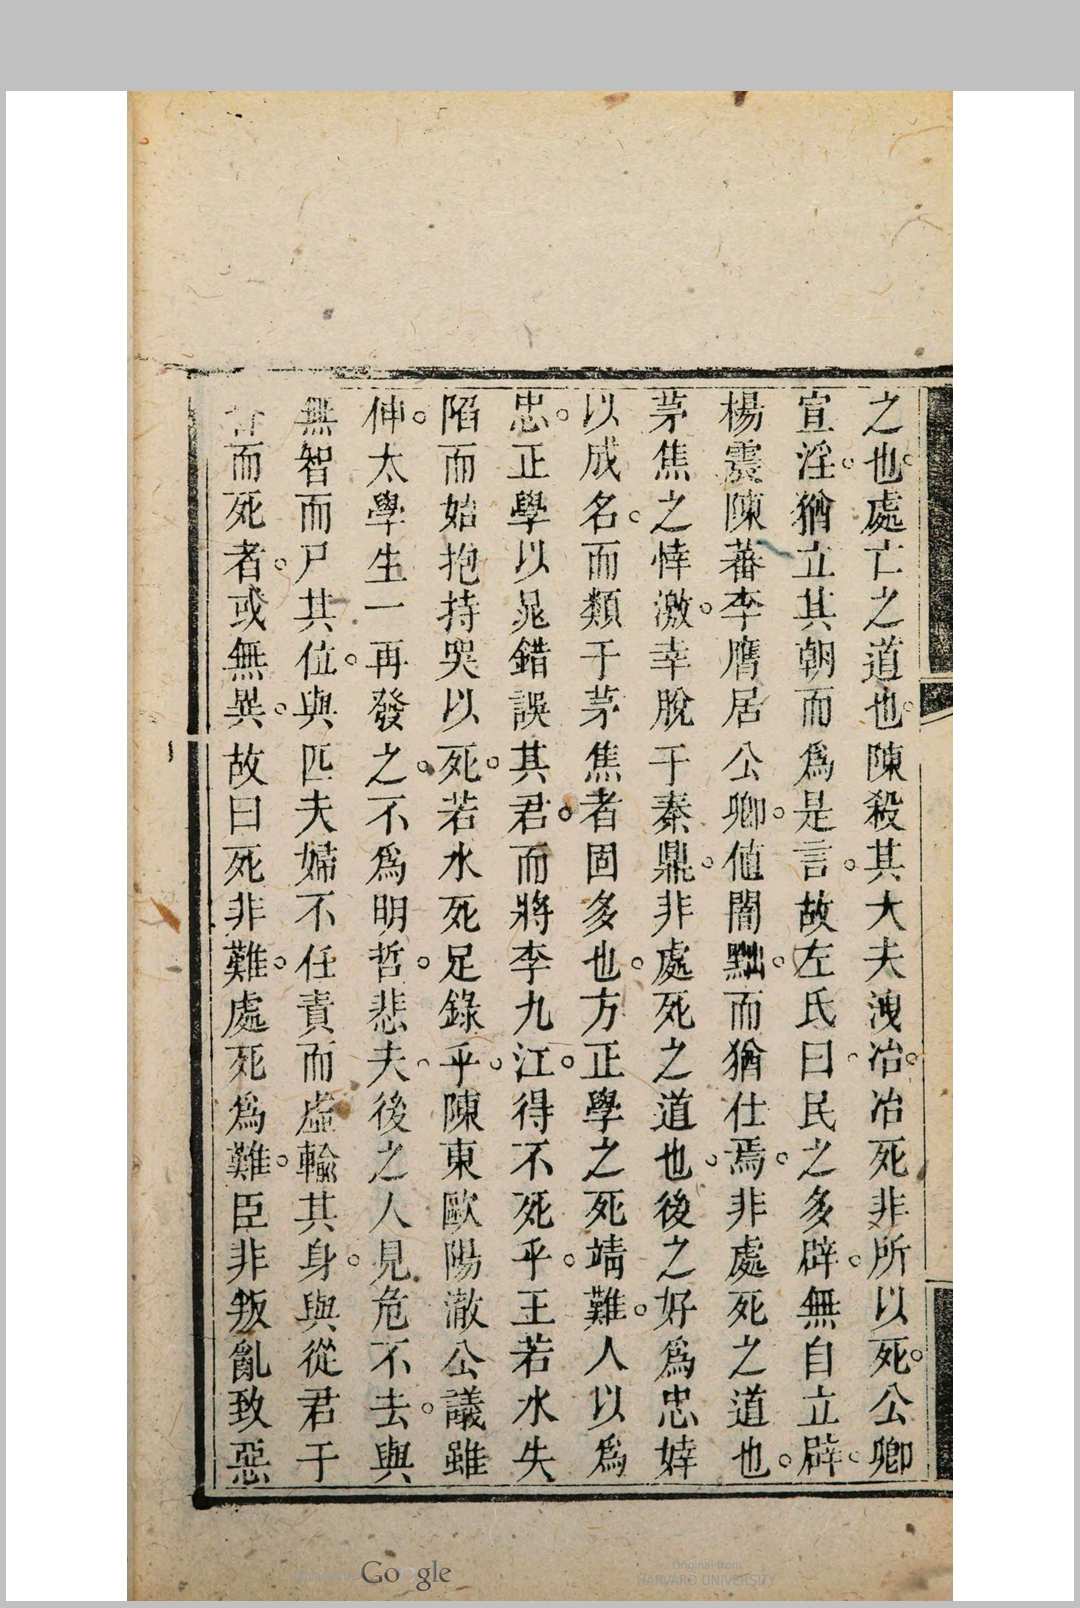 之也處亡之道也陳殺其大夫洩冶冶死非所以死公卿
宣淫猶立其朝而爲是言故左氏曰民之多辟無自立辟
楊震陳蕃李膺居公卿値闇黜而猶仕焉非處死之道也
茅焦之悻激幸脫于秦鼎非處死之道也後之好爲忠婞
以成名而類于茅焦者固多也方正學之死靖難人以爲
忠正學以晁錯誤其君而將李九江得不死乎王若水失
陷而始抱持哭以死若水死足錄乎陳東歐陽澈公議雖
伸太學生一再發之不爲明哲悲夫後之人見危不去與
無智而尸其位與匹夫婦不任責而虛輸其身與從君于
昏而死者或無異故曰死非難處死爲難臣非叛亂致惡
Google
Original from
HARVARD UNIVERSITY